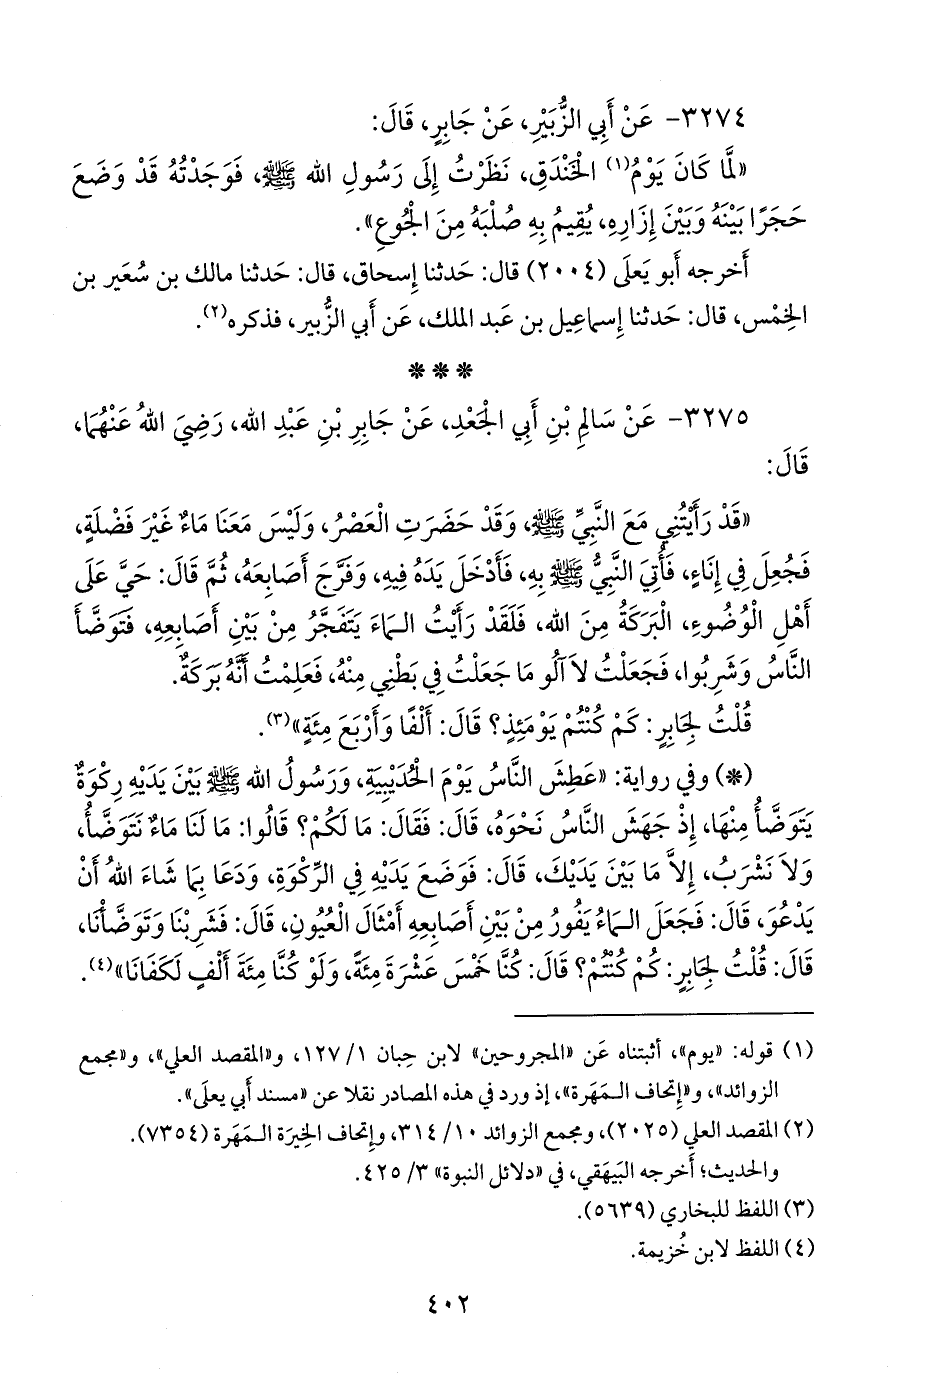 ٣٢٧٤- عَنْ أَبِي الزُّبَيْرِ، عَنْ جَابِرٍ، قَالَ:
«لَمَّا كَانَ يَوْمُ(١) الْخَنْدَقِ، نَظَرْتُ إِلَى رَسُولِ الله ﷺ، فَوَجَدْتُهُ قَدْ وَضَعَ
حَجَرًا بَيْنَهُ وَبَيْنَ إِزَارِهِ، يُقِيمُ بِهِ صُلْبَهُ مِنَ الْجُوعِ».
أَخرجه أَبو يَعلَى (٢٠٠٤) قال: حَدثنا إِسحاق، قال: حَدثنا مالك بن سُعَير بن
الخِمْس، قال: حَدثنا إِسماعِيل بن عَبد الملك، عَن أَبي الزُّبير، فذكره(٢).
***
٣٢٧٥- عَنْ سَالِمِ بْنِ أَبِي الْجَعْدِ، عَنْ جَابِرِ بْنِ عَبْدِ الله، رَضِيَ اللهُ عَنْهُمَا،
قَالَ:
«قَدْ رَأَيْتُنِي مَعَ النَّبِيِّ ﷺ، وَقَدْ حَضَرَتِ الْعَصْرُ، وَلَيْسَ مَعَنَا مَاءٌ غَيْرَ فَضْلَةٍ،
فَجُعِلَ فِي إِنَاءٍ، فَأُتِيَ النَّبِيُّ ﷺ بِهِ، فَأَدْخَلَ يَدَهُ فِيهِ، وَفَرَّجَ أَصَابِعَهُ، ثُمَّ قَالَ: حَيَّ عَلَى
أَهْلِ الْوُضُوءِ، الْبَرَكَةُ مِنَ الله، فَلَقَدْ رَأَيْتُ الـمَاءَ يَتَفَجَّرُ مِنْ بَيْنِ أَصَابِعِهِ، فَتَوَضَّأَ
النَّاسُ وَشَرِبُوا، فَجَعَلْتُ لاَ آلُو مَا جَعَلْتُ فِي بَطْنِي مِنْهُ، فَعَلِمْتُ أَنَّهُ بَرَكَةٌ.
قُلْتُ لِجَابِرٍ: كَمْ كُنْتُمْ يَوْمَئِذٍ؟ قَالَ: أَلْفًا وَأَرْبَعَ مِئَةٍ»(٣).
(*) وفي رواية: «عَطِشَ النَّاسُ يَوْمَ الْحُدَيْبِيَةِ، وَرَسُولُ الله ﷺ بَيْنَ يَدَيْهِ رِكْوَةٌ
يَتَوَضَّأُ مِنْهَا، إِذْ جَهَشَ النَّاسُ نَحْوَهُ، قَالَ: فَقَالَ: مَا لَكُمْ؟ قَالُوا: مَا لَنَا مَاءٌ نَتَوَضَّأُ،
وَلاَ نَشْرَبُ، إِلاَّ مَا بَيْنَ يَدَيْكَ، قَالَ: فَوَضَعَ يَدَيْهِ فِي الرِّكْوَةِ، وَدَعَا بِمَا شَاءَ اللهُ أَنْ
يَدْعُوَ، قَالَ: فَجَعَلَ الـمَاءُ يَفُورُ مِنْ بَيْنِ أَصَابِعِهِ أَمْثَالَ الْعُيُونِ، قَالَ: فَشَرِبْنَا وَتَوَضَّأْنَا،
قَالَ: قُلْتُ لِجَابِرٍ: كَمْ كُنْتُمْ؟ قَالَ: كُنَّا خَمْسَ عَشْرَةَ مِئَةً، وَلَوْ كُنَّا مِئَةَ أَلْفٍ لَكَفَانَا»(٤).
(١) قوله: «يوم»، أثبتناه عَن «المجروحين» لابن حِبان ١/ ١٢٧، و«المقصد العلي»، و«مجمع
الزوائد»، و«إِتحاف الـمَهَرة»، إذ ورد في هذه المصادر نقلا عن «مسند أَبي يعلَى».
(٢) المقصد العلي (٢٠٢٥)، ومجمع الزوائد ١٠/ ٣١٤، وإِتحاف الخِيرَة الـمَهَرة (٧٣٥٤).
والحديث؛ أَخرجه البَيهَقي، في «دلائل النبوة» ٣/ ٤٢٥.
(٣) اللفظ للبخاري (٥٦٣٩).
(٤) اللفظ لابن خُزيمة.
٤٠٢